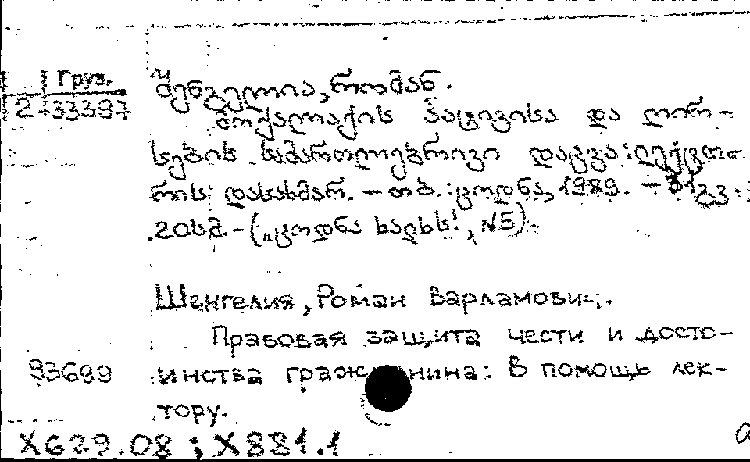 Груз.
2-33397
შენგელია, რომან.
მოქალაქის პატივისა და ღირ-
სების სამართლებრივი დაცვა: ლექტო-
რის დასახმარ. – თბ.: ცოდნა, 1989. – 31 გვ.;
20სმ – („ცოდნა ხალხს!", №5).
Шенгелия, Роман Варламович.
Правовая защита чести и досто-
93689 инства гражданина: В помощь лек-
тору.
X629.08 ; X881.1